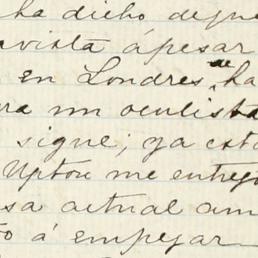 ha dicho de que
á pesar
en Londres, ha
un oculista
sigue; ya esta
Upton me entreg
sa actual am
o á empezar